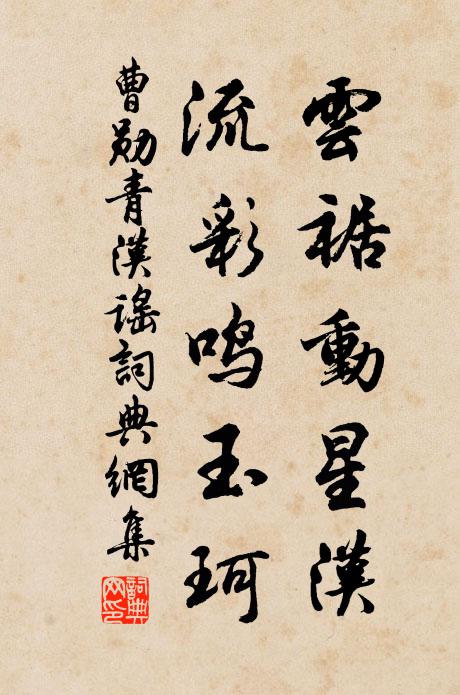 雲裾動星漢
流彩鳴玉珂
曹勛青漢謡詞典網集
詞典网印